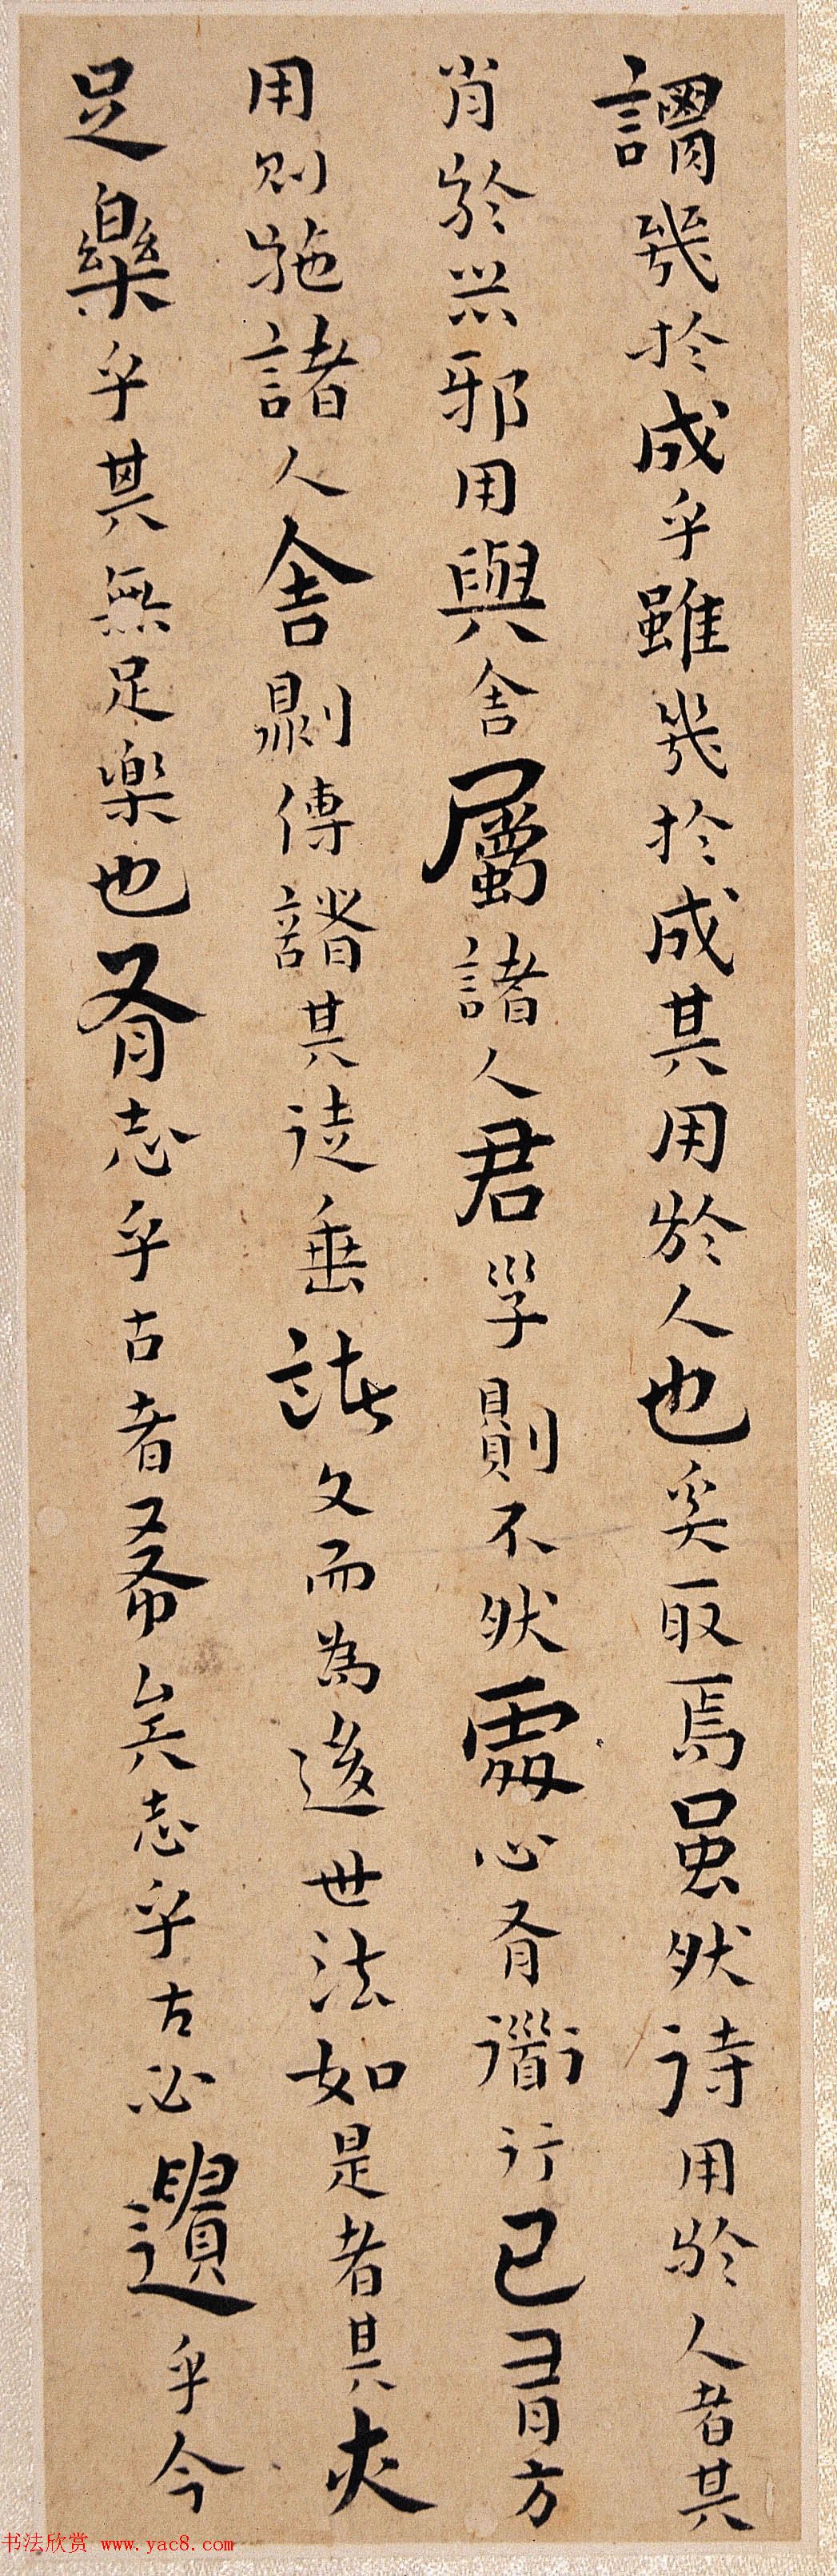 謂幾於成乎雖幾於成其用於人也奚取焉虽然待用於人者其
肖於器邪用與舍屬諸人君子則不然處心有道行己有方
用則施諸人舍則傳諸其徒垂諸文而為後世法如是者其亦
足樂乎其無足樂也有志乎古者希矣志乎古必遺乎今
书法欣赏 www.yac8.com